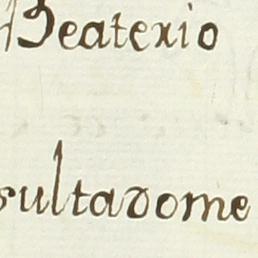 Beaterio
sultadome